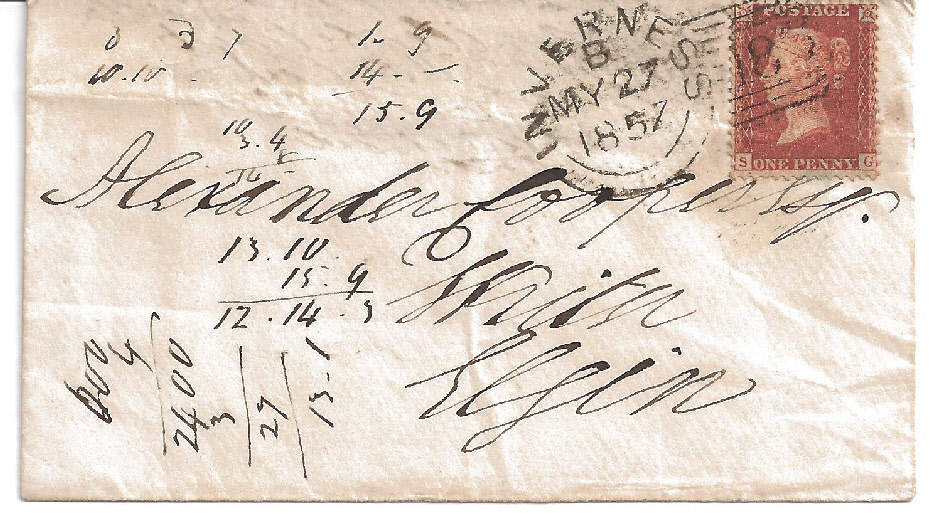 POSTAGE
S ONE PENNY G
INVERNESS
B
MY 27
1857
183
3 7
10.10
1 - 9
14 . -
15 . 9
10
3.4
Alexander Cooper Esq.
Writer
Elgin
13 . 10
15 . 9
12 . 14 . 3
600
4
2400
3
29
13 . 1